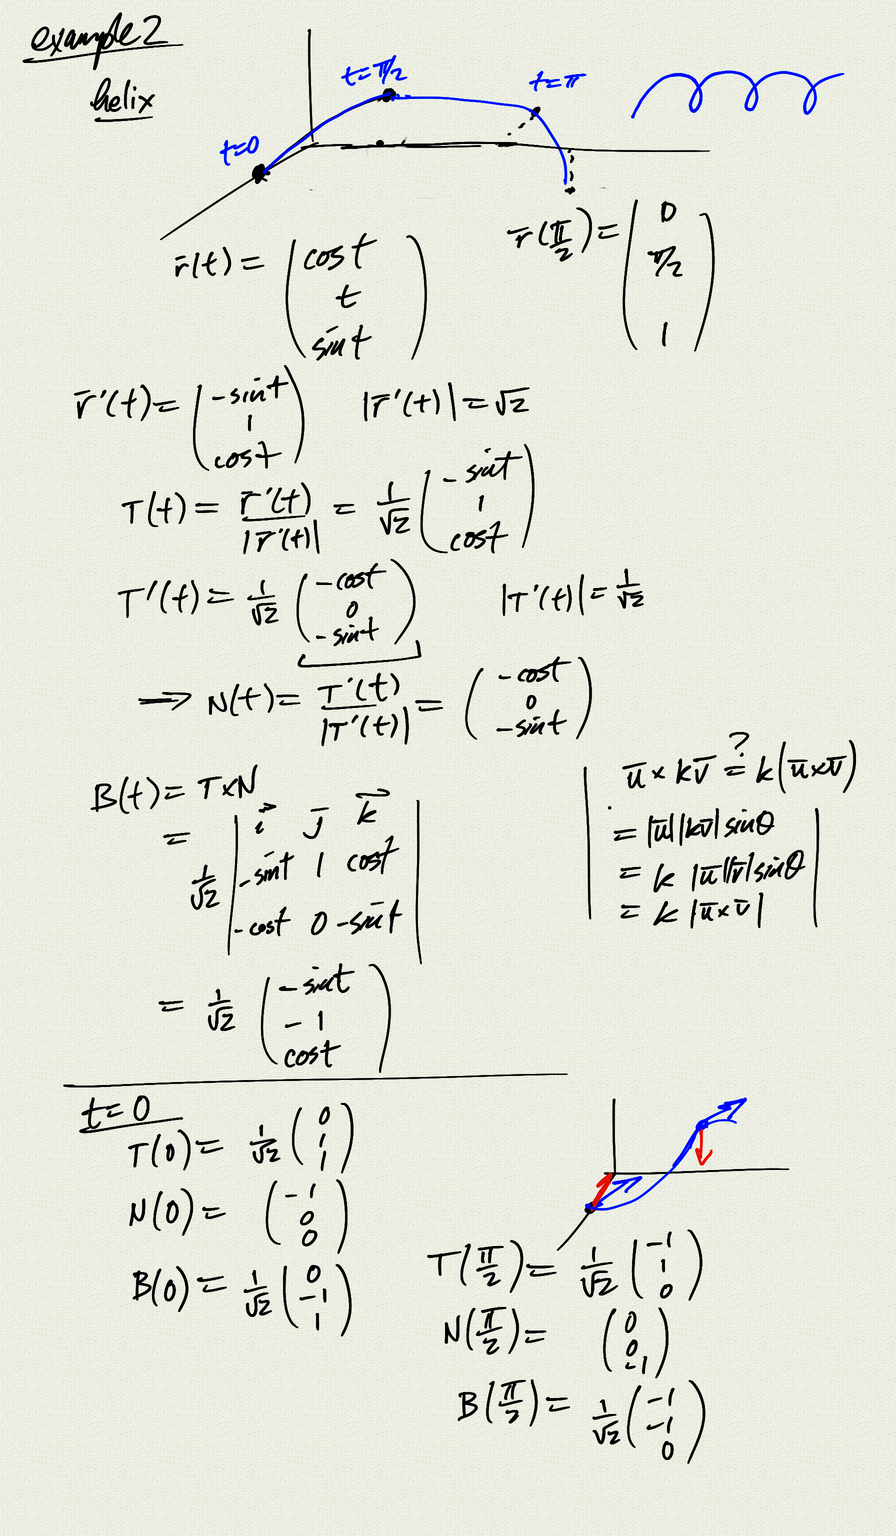 example 2
helix
t=0
t=π/2
t=π
r̄(t) = (cost
t
sint)
r̄(π/2) = (0
π/2
1)
r̄'(t) = (-sint
1
cost)
|r̄'(t)| = √2
T(t) = r̄'(t)/|r̄'(t)| = 1/√2 (-sint
1
cost)
T'(t) = 1/√2 (-cost
0
-sint)
|T'(t)| = 1/√2
→ N(t) = T'(t)/|T'(t)| = (-cost
0
-sint)
B(t) = T×N
= 1/√2 | i⃗ j̄ k⃗
-sint 1 cost
-cost 0 -sint |
= 1/√2 (-sint
-1
cost)
ū × kv̄ ?= k(ū×v̄)
= |ū||kv̄| sinθ
= k |ū||v̄| sinθ
= k |ū×v̄|
t=0
T(0) = 1/√2 (0
1
1)
N(0) = (-1
0
0)
B(0) = 1/√2 (0
-1
1)
T(π/2) = 1/√2 (-1
1
0)
N(π/2) = (0
0
-1)
B(π/2) = 1/√2 (-1
-1
0)